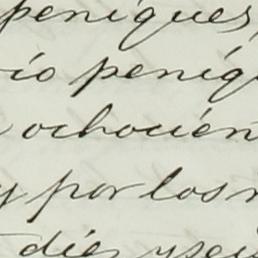 peniques,
io peniq
ochocien
y por los
diés y sei